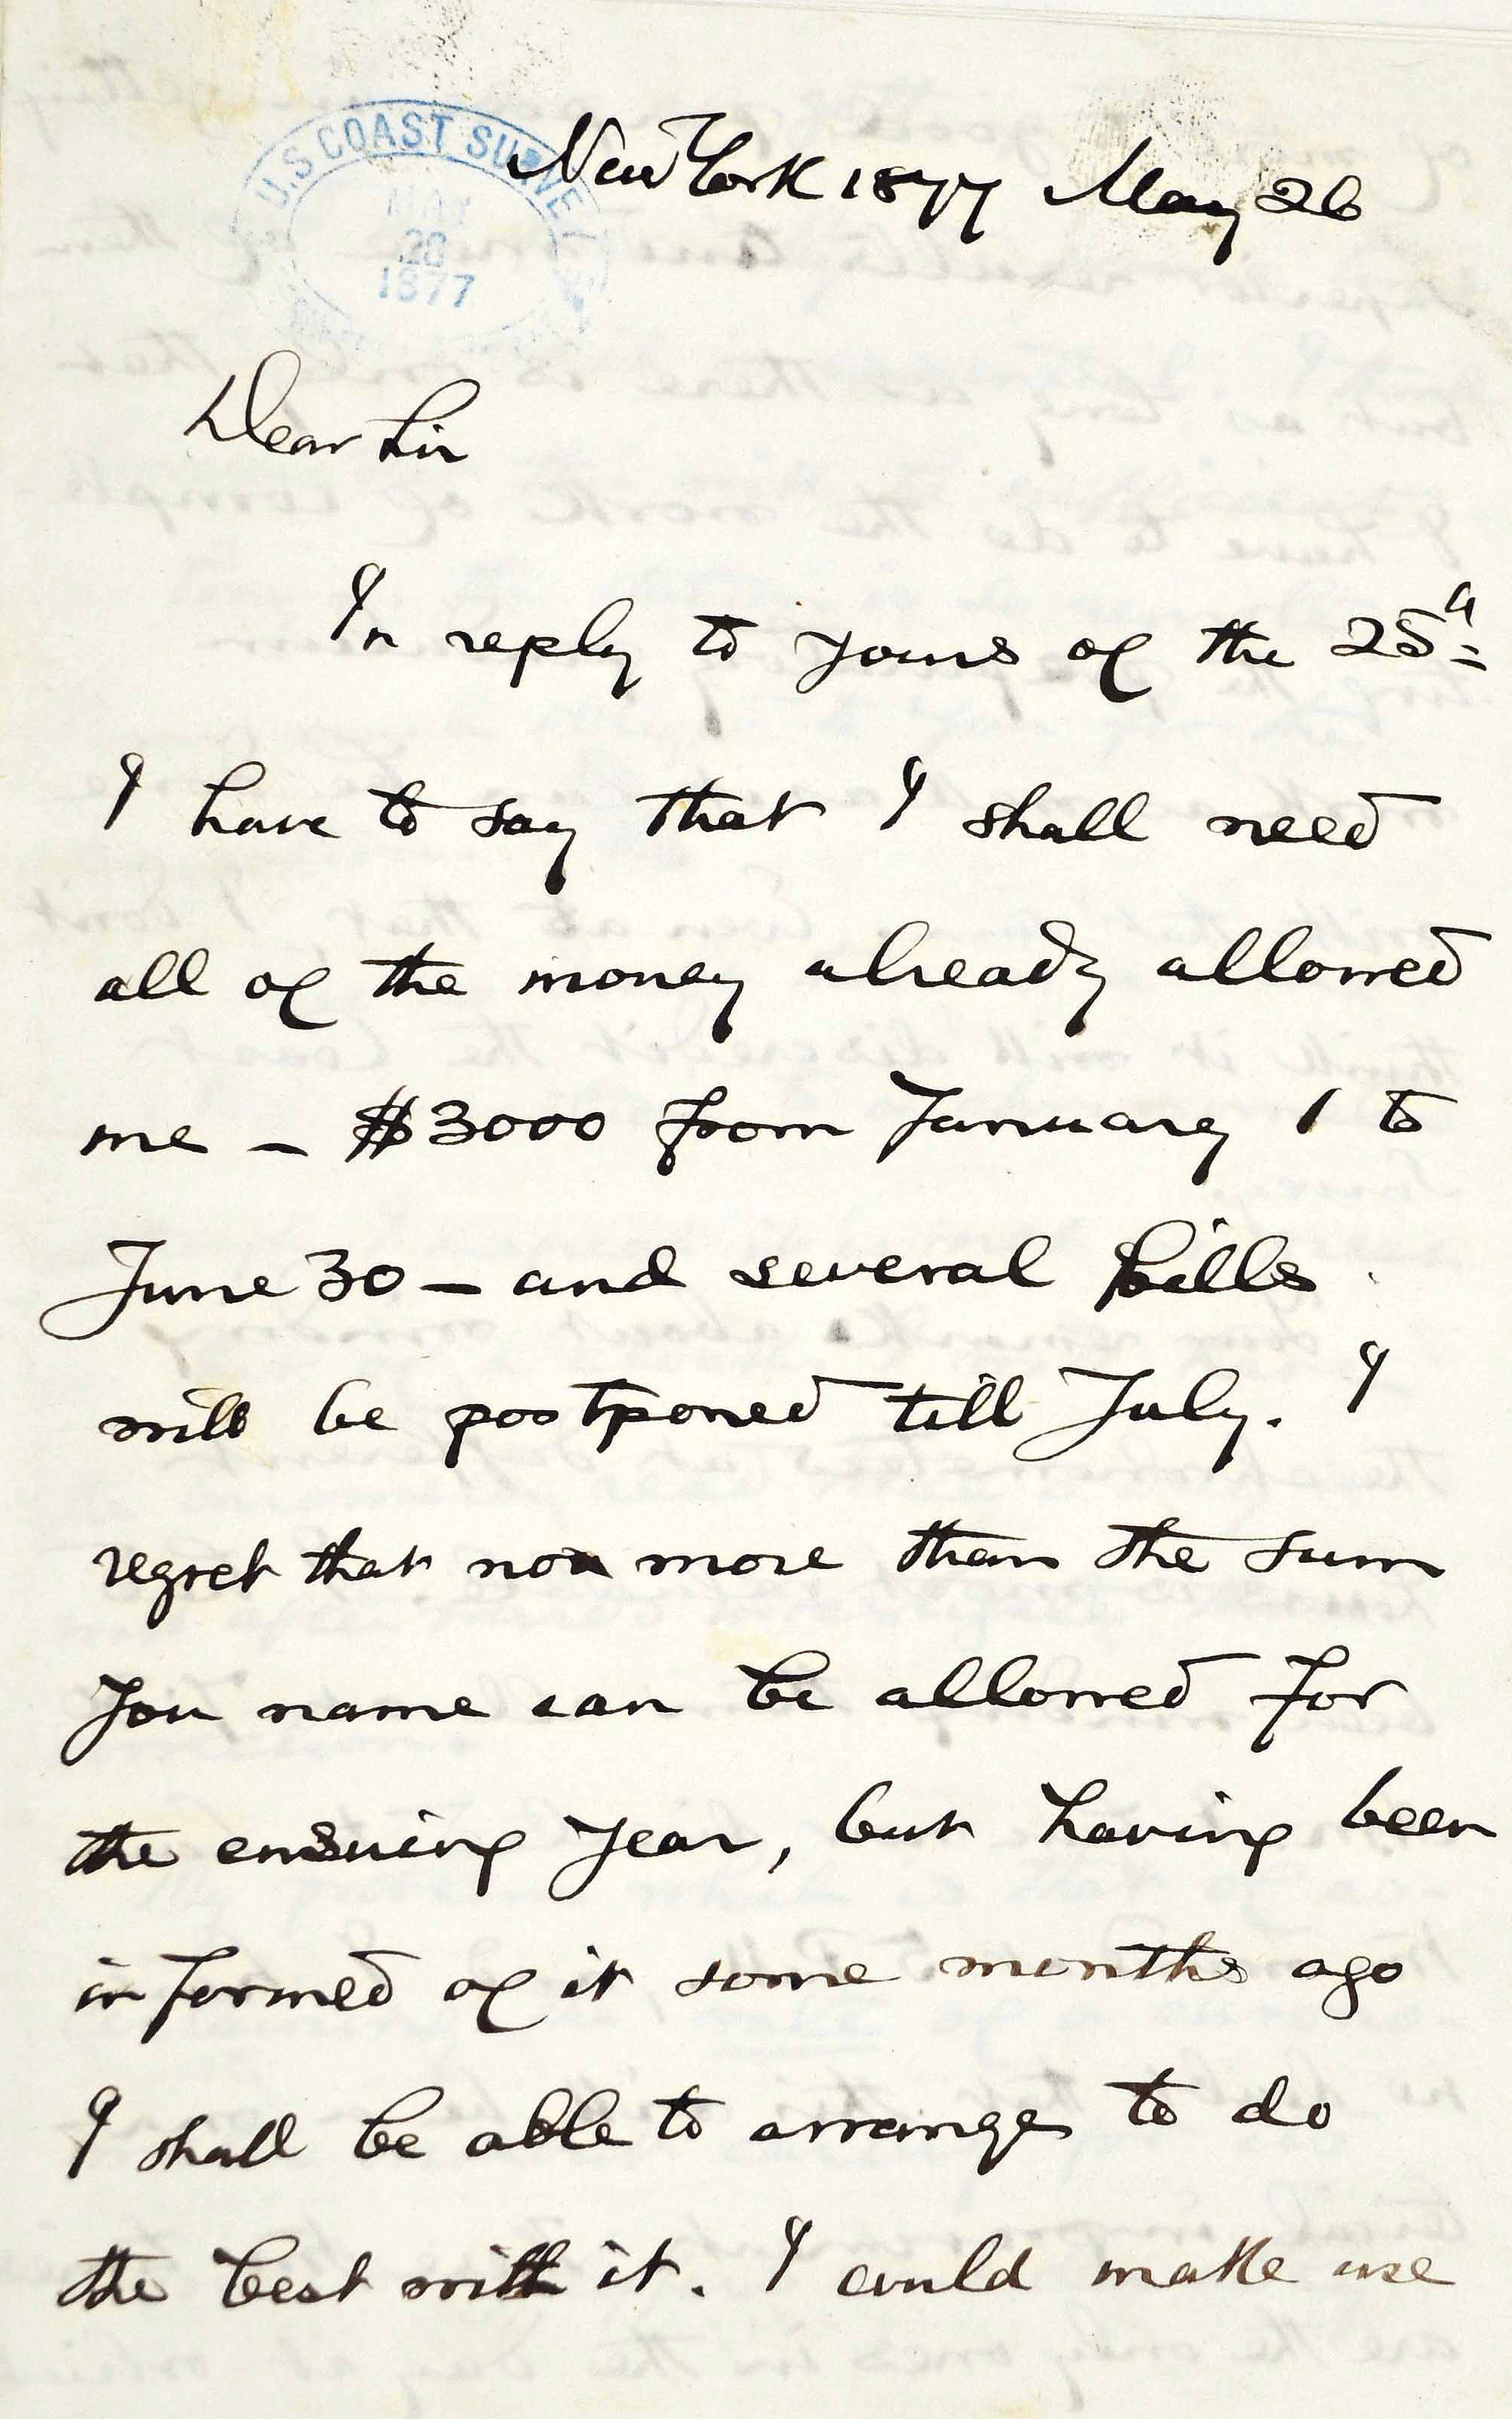 U.S COAST SURVEY
MAY
28
1877
New York 1877 May 26
Dear Sir
In reply to yours of the 25th
I have to say that I shall need
all of the money already allowed
me — $3000 from January 1 to
June 30 — and several bills
will be postponed till July. I
regret that no more than the sum
you name can be allowed for
the ensuing year, but having been
informed of it some months ago
I shall be able to arrange to do
the best with it. I could make use